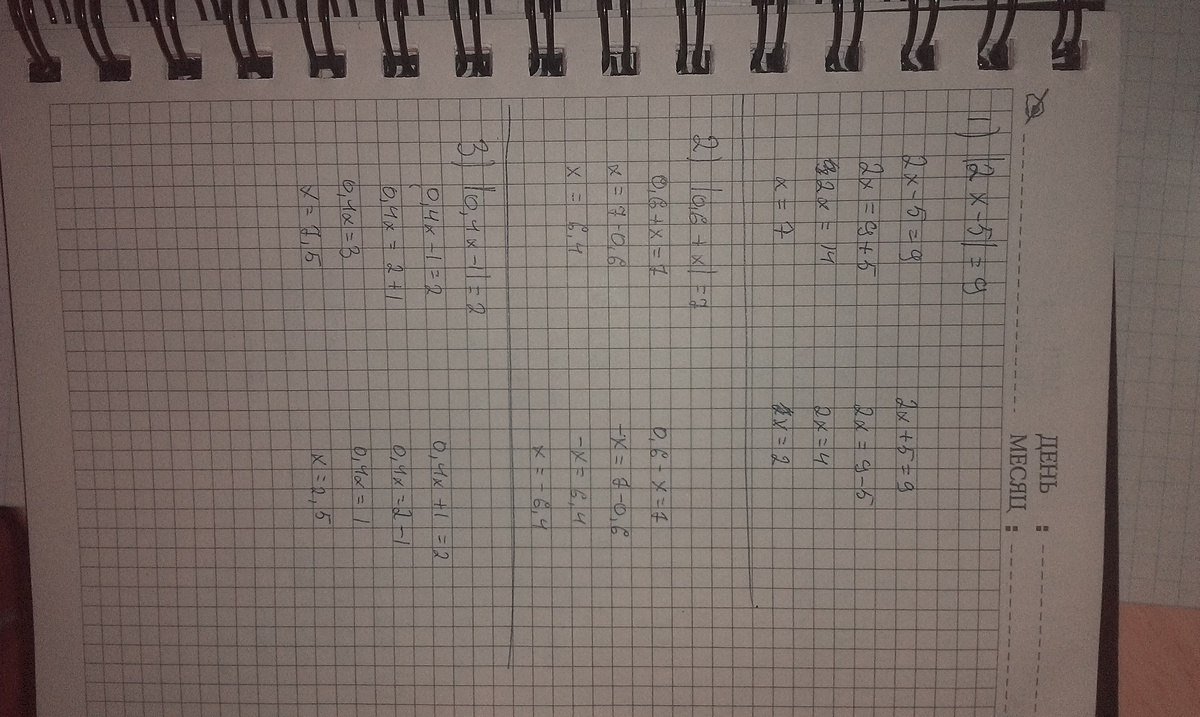 ДЕНЬ :
МЕСЯЦ :
1) |2x-5|=9
2x-5=9
2x=9+5
2x=14
x=7
2x+5=9
2x=9-5
2x=4
x=2
2) |0,6+x|=7
0,6+x=7
x=7-0,6
x=6,4
0,6-x=7
-x=7-0,6
-x=6,4
x=-6,4
3) |0,4x-1|=2
0,4x-1=2
0,4x=2+1
0,4x=3
x=7,5
0,4x+1=2
0,4x=2-1
0,4x=1
x=2,5